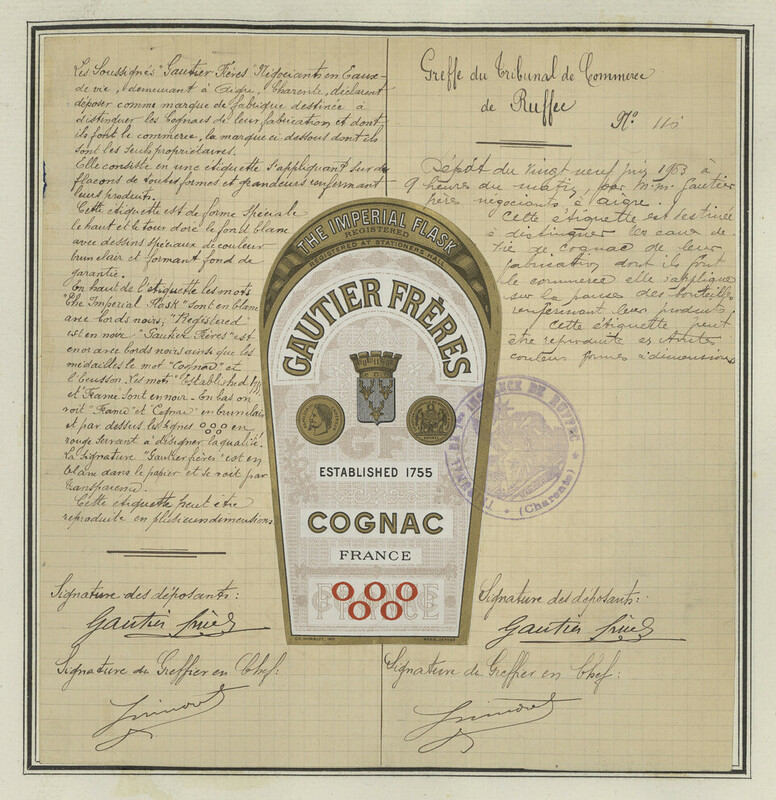 Les Soussignés "Gautier Frères" Négociants en Eaux-
de vie, demeurant à Aigre, Charente, déclarent
déposer comme marque de fabrique destinée à
distinguer les Cognacs de leur fabrication et dont
ils font le commerce, la marque ci dessous dont ils
sont les seuls propriétaires.
Elle consiste en une étiquette s'appliquant sur des
flacons de toutes formes et grandeurs renfermant
leurs produits.
Cette étiquette est de forme spéciale
le haut et le tour doré le fond blanc
avec dessins spéciaux de couleur
brun clair et formant fond de
garantie.
En haut de l'étiquette les mots
"The Imperial Flask" sont en blanc
avec bords noirs, "Registered"
est en noir "Gautier Frères" est
en or avec bords noirs ainsi que les
médailles le mot "Cognac" et
l'Ecusson. Les mots "Established
et France sont en noir - En bas on
voit "France" et Cognac en brun clair
et par dessus les signes ooooo en
rouge servant à désigner la qualité.
La signature "Gautier frères" est en
blanc dans le papier et se voit par
transparence.
Cette étiquette peut être
reproduite en plusieurs dimensions
Signature des déposants:
Gautier frères
Signature du Greffier en Chef:
Greffe du Tribunal de Commerce
de Ruffec
N°
Dépôt du vingt neuf juin 1903 à
9 heures du matin, par M.M. Gautier
frères négociants à Aigre.
Cette étiquette est destinée
à distinguer les eaux de
vie de cognac de leur
fabrication dont ils font
le commerce elle s'applique
sur la panse des bouteilles
renfermant leurs produits
Cette étiquette peut
être reproduite en toutes
couleurs formes & dimensions
Signature des déposants:
Gautier frères
Signature du Greffier en Chef:
THE IMPERIAL FLASK
REGISTERED
REGISTERED AT STATIONERS HALL
GAUTIER FRÈRES
GF
ESTABLISHED 1755
COGNAC
FRANCE
FRANCE
TRIBUNAL DE 1re INSTANCE DE RUFFEC
(Charente)